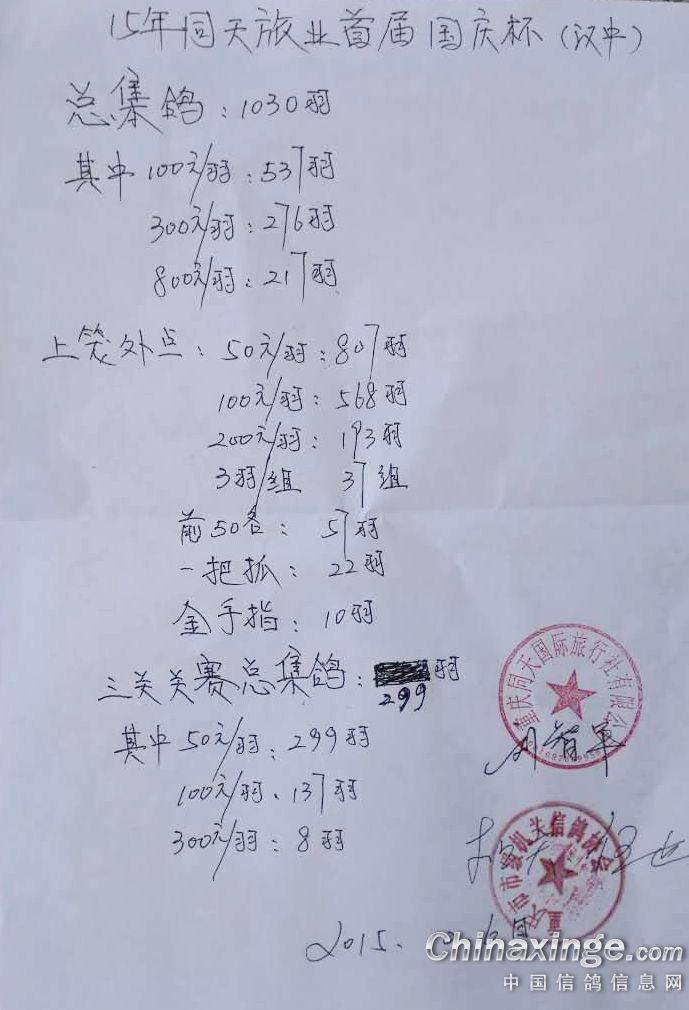 15年同天旅业首届国庆杯(汉中)
总集鸽:1030羽
其中100元/羽:537羽
300元/羽:276羽
800元/羽:217羽
上笼外点:50元/羽:807羽
100元/羽:568羽
200元/羽:193羽
3羽/组 37组
前50名:57羽
一把抓:22羽
金手指:10羽
三关关赛总集鸽:羽
299
其中50元/羽:299羽
100元/羽、137羽
300元/羽:8羽
重庆同天国际旅行社有限公司
重庆市市级机关信鸽协会
2015.
Chinaxinge.com
中国信鸽信息网